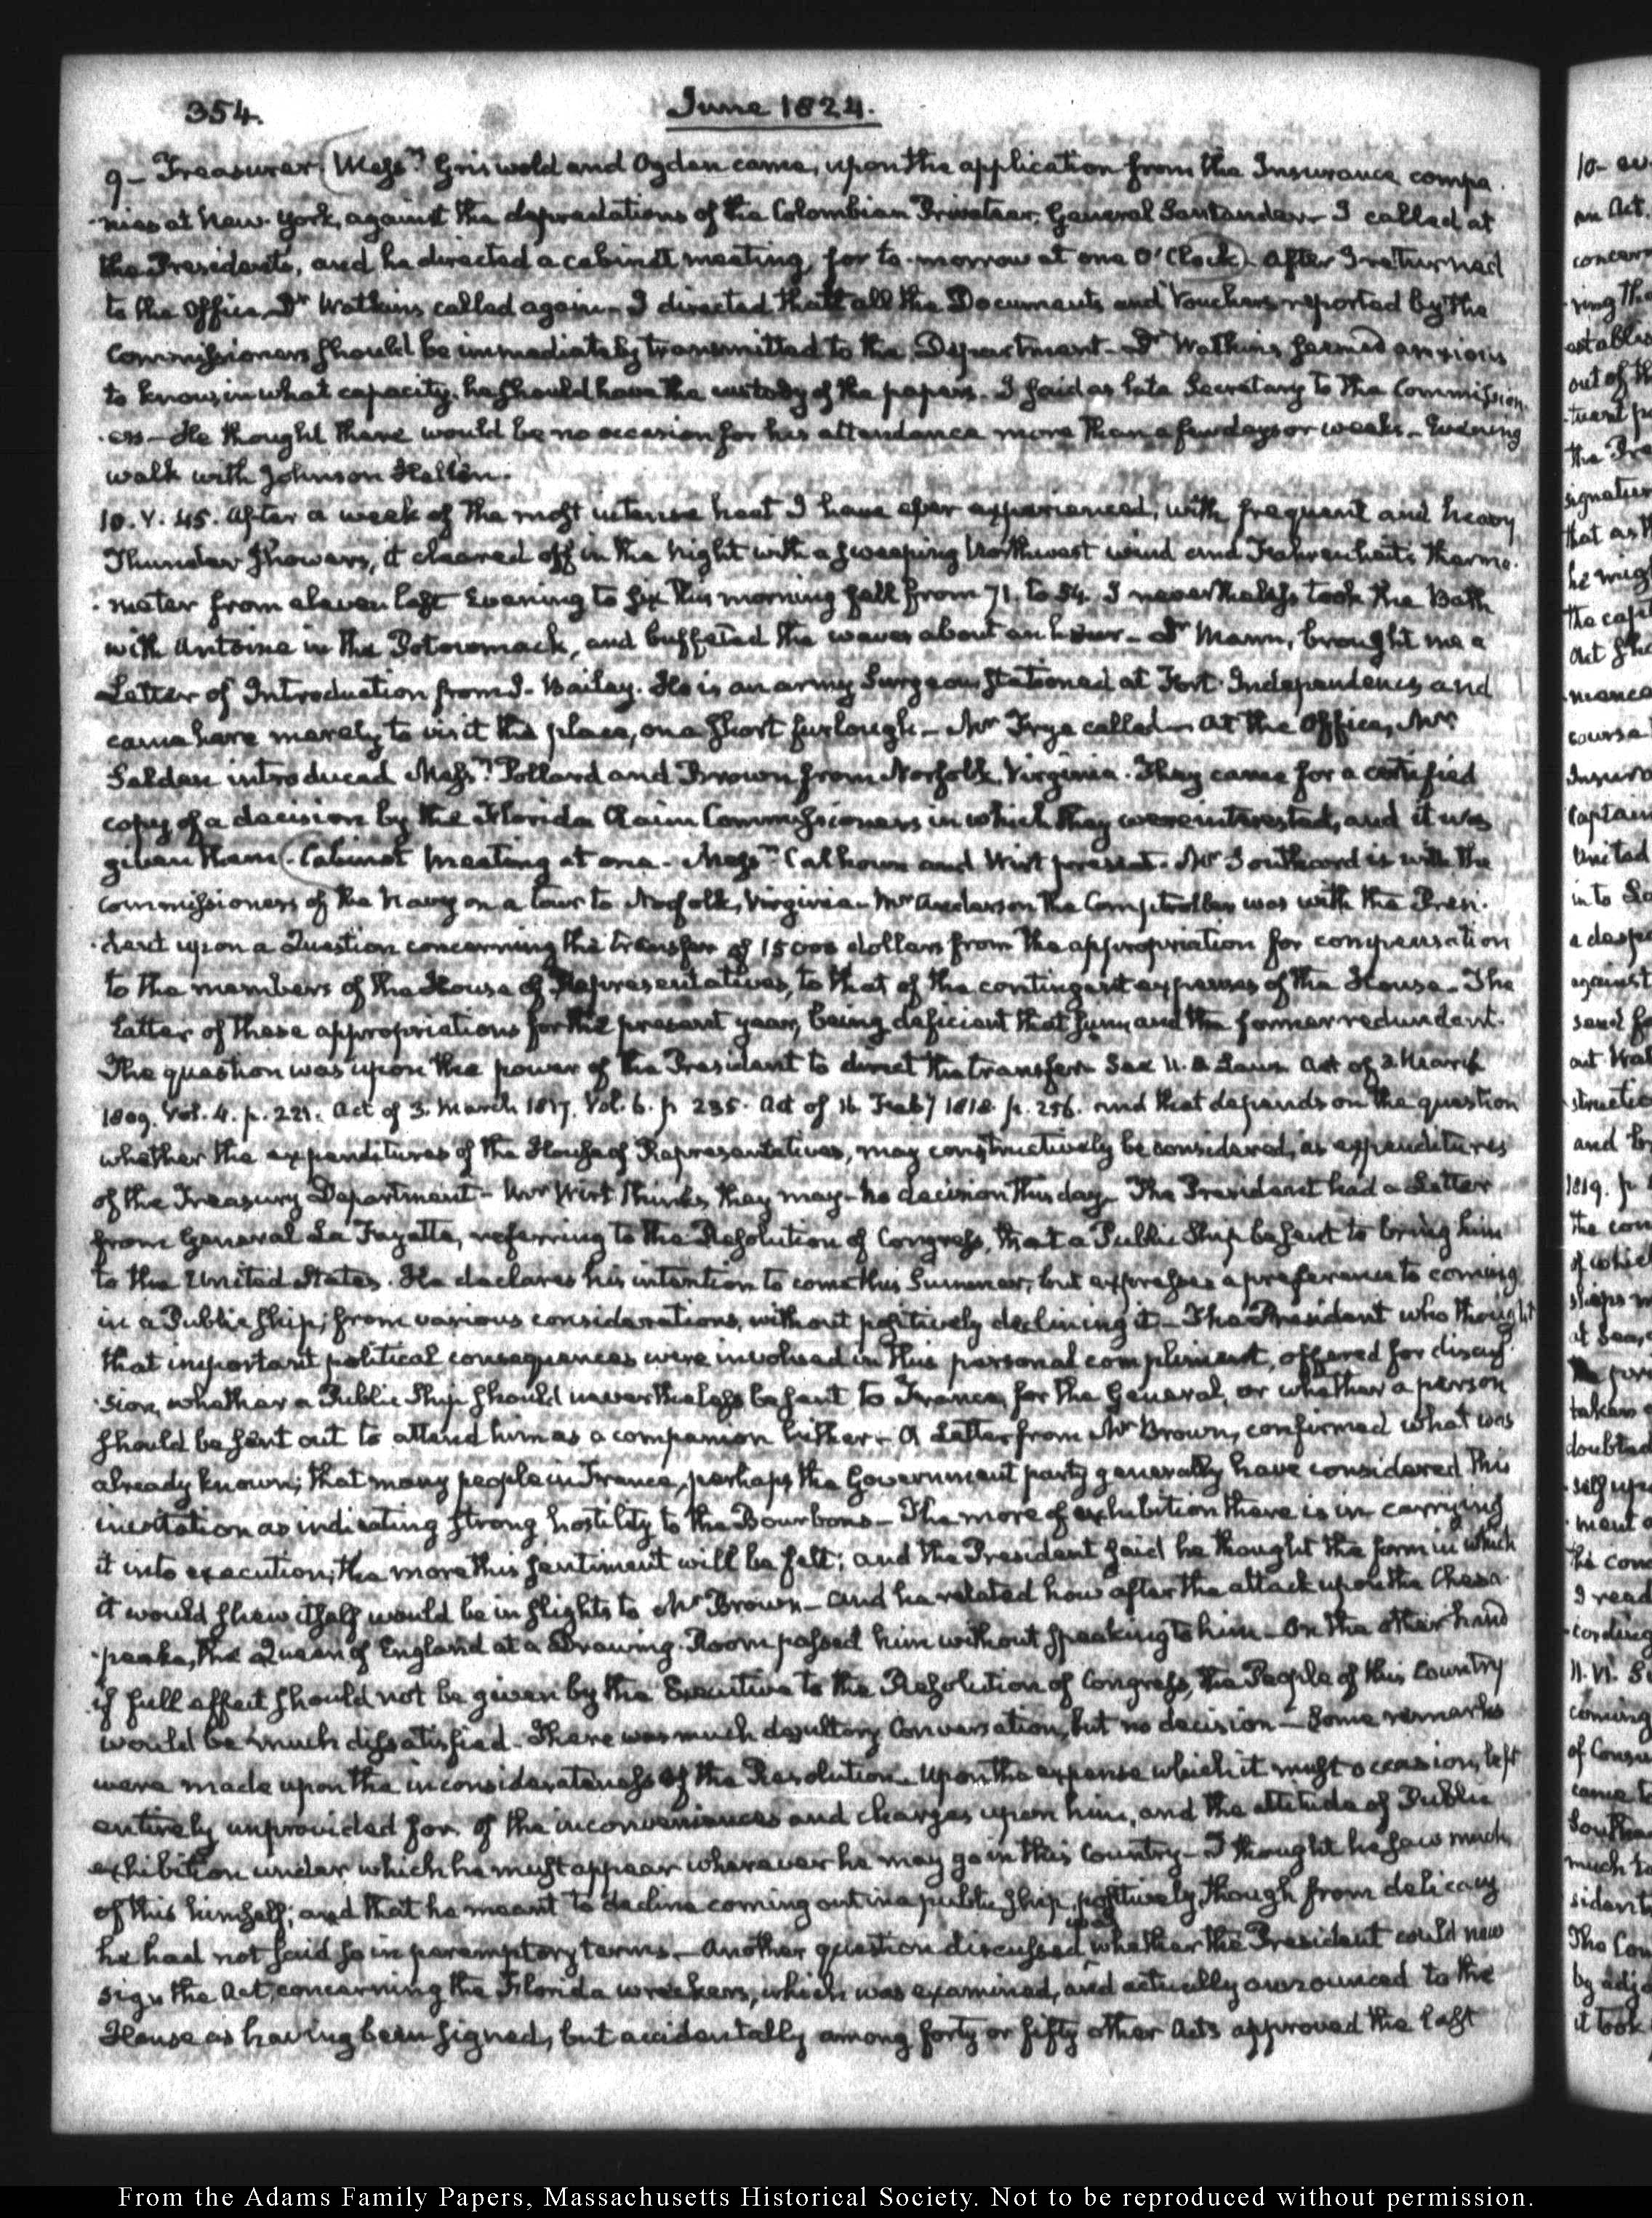 354.
June 1824.
9 - Treasurer. Messrs. Griswold and Ogden came, upon the application from the Insurance compa-
-nies at New-York, against the depredations of the Colombian Privateer, General Santander. I called at
the Presidents, and he directed a cabinet meeting, for to-morrow at one O'Clock. After I returned
to the Office, Dr. Watkins called again. I directed that all the Documents and Vouchers reported by the
Commissioners should be immediately transmitted to the Department. Dr. Watkins seemed anxious
to know, in what capacity he should have the custody of the papers. I said as late Secretary to the Commission-
-ers - He thought there would be no occasion for his attendance more than a few days or weeks. Evening
walk with Johnson Hellen.
10. V. 45. After a week of the most intense heat I have ever experienced, with frequent and heavy
Thunder Showers, it cleared off in the Night with a sweeping Northwest wind and Fahrenheits Thermo-
-meter from eleven last Evening to six this morning fell from 71. to 54. I nevertheless took the Bath
with Antoine in the Potowmack, and buffeted the waves about an hour - Dr. Mann, brought me a
Letter of Introduction from J. Bailey. He is an army Surgeon stationed at Fort Independence and
came here merely to visit the place, on a short furlough - Mr. Frye called - At the Office, Mr.
Selden introduced Messrs. Pollard and Brown from Norfolk, Virginia. They came for a certified
copy of a decision by the Florida Claim Commissioners in which they were interested, and it was
given them. Cabinet meeting at one - Messrs. Calhoun and Wirt present. Mr. Southard is with the
Commissioners of the Navy on a tour to Norfolk, Virginia. Mr. Anderson the Comptroller was with the Presi-
-dent upon a Question concerning the transfer of 15000 dollars from the appropriation for compensation
to the members of the House of Representatives, to that of the contingent expenses of the House. The
latter of these appropriations for the present year, being deficient that sum, and the former redundant.
The question was upon the power of the President to direct the transfer. See U.S. Laws Act of 3. March
1809. Vol. 4. p. 221. Act of 3. March 1817. Vol. 6. p 235. Act of 16 Feby 1818 p. 256. and that depends on the question
whether the expenditures of the House of Representatives, may constructively be considered, as expenditures
of the Treasury Department - Mr. Wirt thinks they may - No decision this day. The President had a Letter
from General La Fayette, referring to the Resolution of Congress, that a Public Ship be sent to bring him
to the United States. He declares his intention to come this Summer, but expresses a preference to coming
in a Public Ship; from various considerations, without positively declining it - The President who thought
that important political consequences were involved in this personal compliment, offered for discus-
-sion, whether a Public Ship should nevertheless be sent to France, for the General, or whether a person
should be sent out to attend him as a companion hither. A Letter from Mr. Brown, confirmed what was
already known; that many people in France, perhaps the Government party generally have considered this
invitation as indicating strong hostility to the Bourbons - The more of exhibition there is in carrying
it into execution, the more this sentiment will be felt; and the President said he thought the form in which
it would shew itself would be in slights to Mr. Brown - and he related how after the attack upon the Chesa-
-peake, the Queen of England at a Drawing-Room passed him without speaking to him - On the other hand
if full effect should not be given by the Executive to the Resolution of Congress, the People of this Country
would be much dissatisfied. There was much desultory Conversation, but no decision - Some remarks
were made upon the inconsiderateness of the Resolution. Upon the expense which it must occasion, left
entirely unprovided for. of the inconveniences and charges upon him, and the attitude of Public
exhibition under which he must appear wherever he may go in this Country - I thought he saw much
of this himself; and that he meant to decline coming out in a public ship, positively, though from delicacy
he had not said so in peremptory terms. Another question discussed was whether the President could now
sign the Act, concerning the Florida wreckers, which was examined, and actually announced to the
House as having been signed, but accidentally among forty or fifty other Acts approved the last
From the Adams Family Papers, Massachusetts Historical Society. Not to be reproduced without permission.